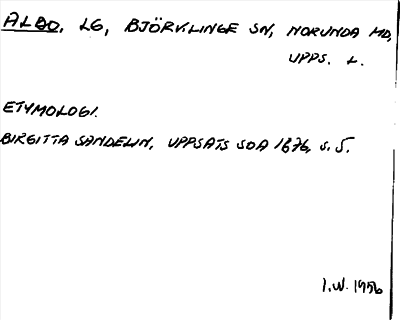 ALBO, LG, BJÖRKLINGE SN, NORUNDA HD,
UPPS. L.
ETYMOLOGI.
BIRGITTA SANDELIN, UPPSATS SOA 1676, s. 5.
I.W. 1956